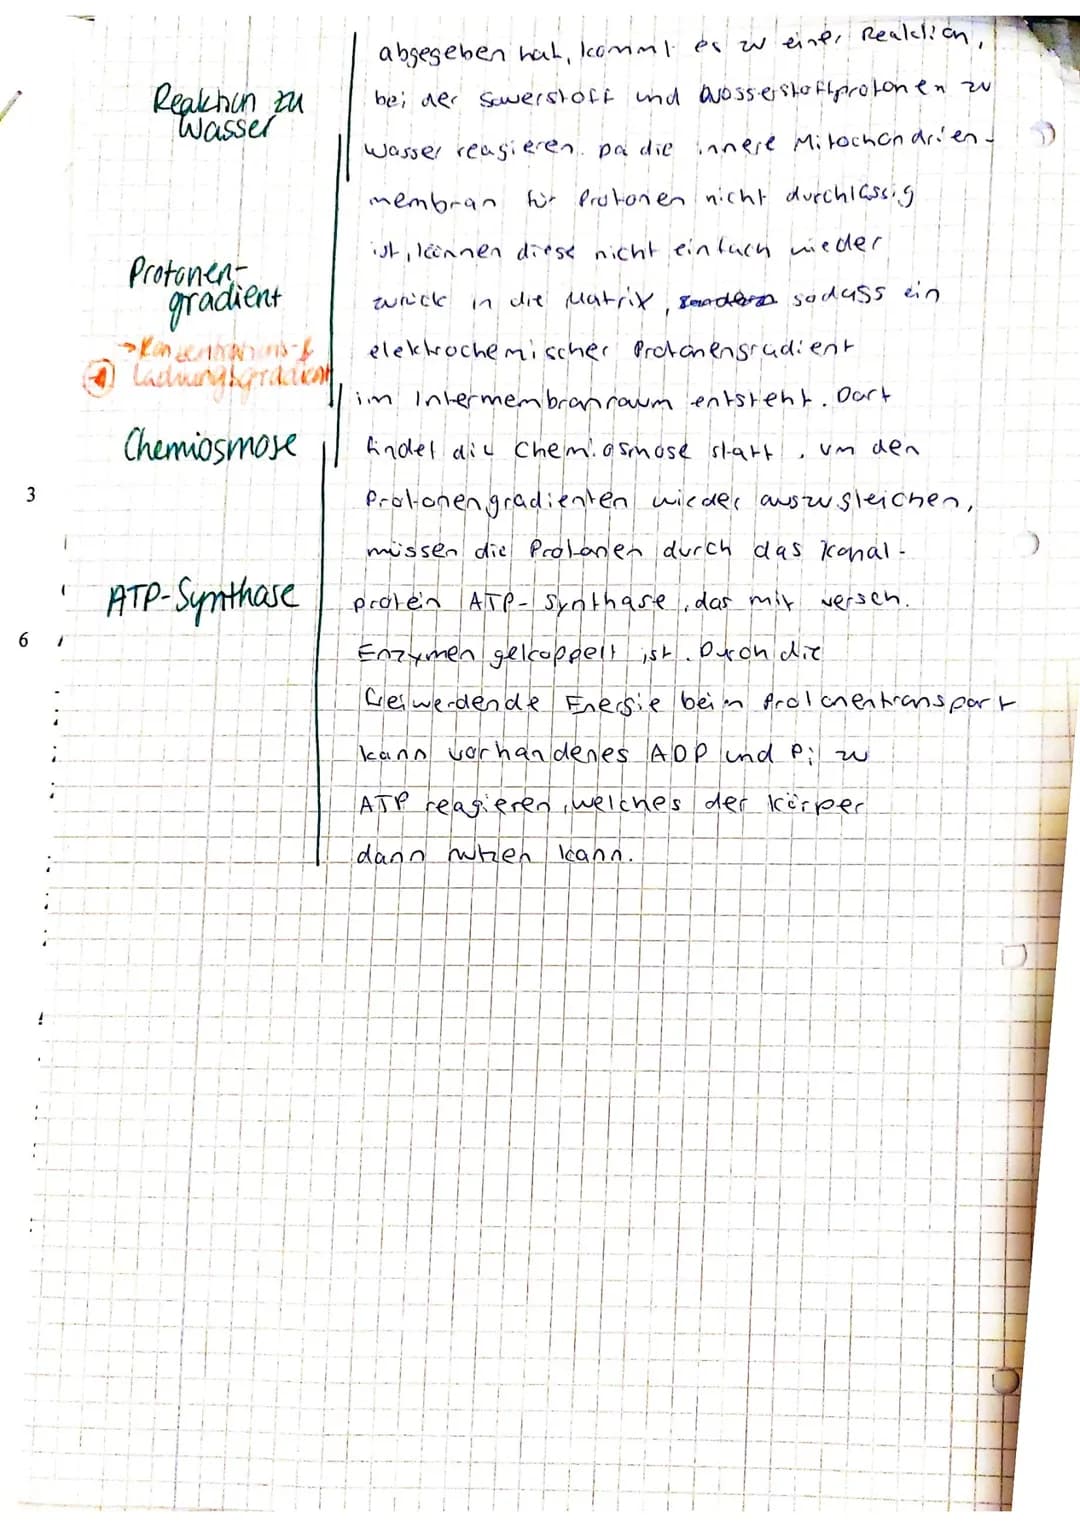 abgegeben hat, kommt es zu einer Reaktion,
Reaktion zu
Wasser
bei der Sauerstoff und Wasserstoffprotonen zu
Wasser reagieren. Da die innere Mitochondrien-
membran für Protonen nicht durchlässig
ist, können diese nicht einfach wieder
Protonen-
gradient
zurück in die Matrix, sondern sodass ein
→ Konzentrations- &
Ladungsgradient
elektrochemischer Protonengradient
im Intermembranraum entsteht. Dort
Chemiosmose
findet die Chemiosmose statt. Um den
3
Protonengradienten wieder auszugleichen,
müssen die Protonen durch das Kanal-
ATP-Synthase
protein ATP-Synthase, das mit versch.
6
Enzymen gekoppelt ist. Durch die
freiwerdende Energie beim Protonentransport
kann vorhandenes ADP und Pi zu
ATP reagieren, welches der Körper
dann nutzen kann.